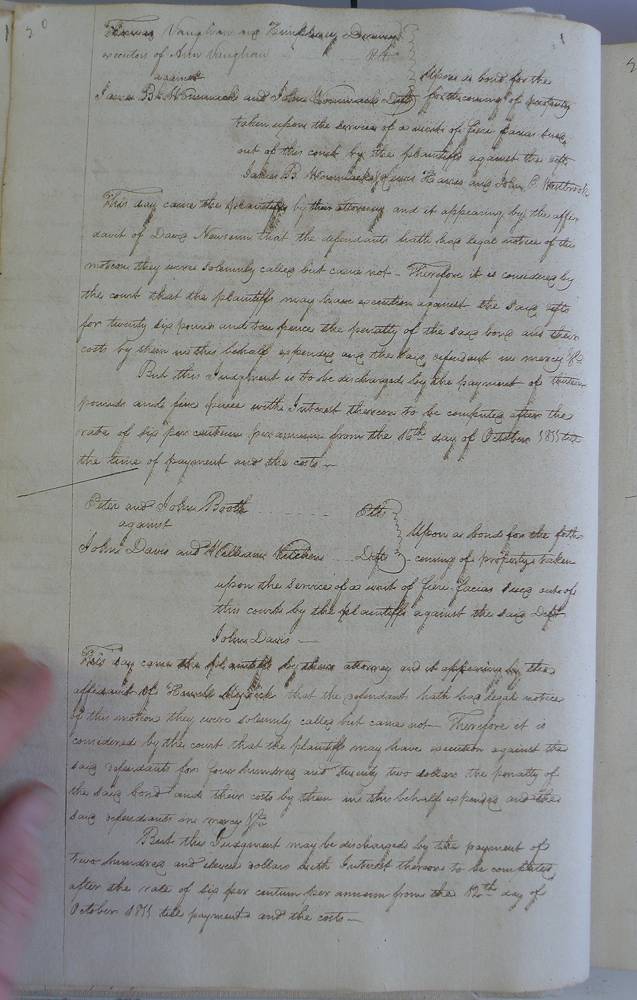 Thomas Vaughan and
executors of Ann Vaughan
against
James B. Womack and John Womack Defts
Upon a bond for the
forthcoming of property
taken upon the service of a writ of fieri facias sued
out of this court by the plaintiffs against the defts
James B Womack Lewis and John C
This day came the plaintiffs by their attorney and it appearing by the affi
davit of David Newsum that the defendants hath had legal notice of this
motion they were solemnly called but came not – Therefore it is considered by
the court that the plaintiffs may have execution against the said defts
for twenty six pounds and pence the penalty of the said bond and their
costs by them in this behalf expended and the said defendant in mercy &c
But this Judgment is to be discharged by the payment of thirteen
pounds and five pence with Interest thereon to be computed after the
rate of six per centum per annum from the 16th day of October 1811 till
the time of payment and the costs –
Peter and John Booth
against
John Davis and William Kitchen Defts
Upon a bond for the forth
coming of property taken
upon the service of a writ of fieri facias sued out of
this court by the plaintiffs against the said Deft
John Davis –
This day came the plaintiffs by their attorney and it appearing by the
affidavit of that the defendant hath had legal notice
of this motion they were solemnly called but came not – Therefore it is
considered by the court that the plaintiffs may have execution against the
said defendants for four hundred and twenty two dollars the penalty of
the said bond and their costs by them in this behalf expended and the
said defendants in mercy &c
But this Judgment may be discharged by the payment of
two hundred and eleven dollars with Interest thereon to be computed
after the rate of six per centum per annum from the 12th day of
October 1811 till payment and the costs –